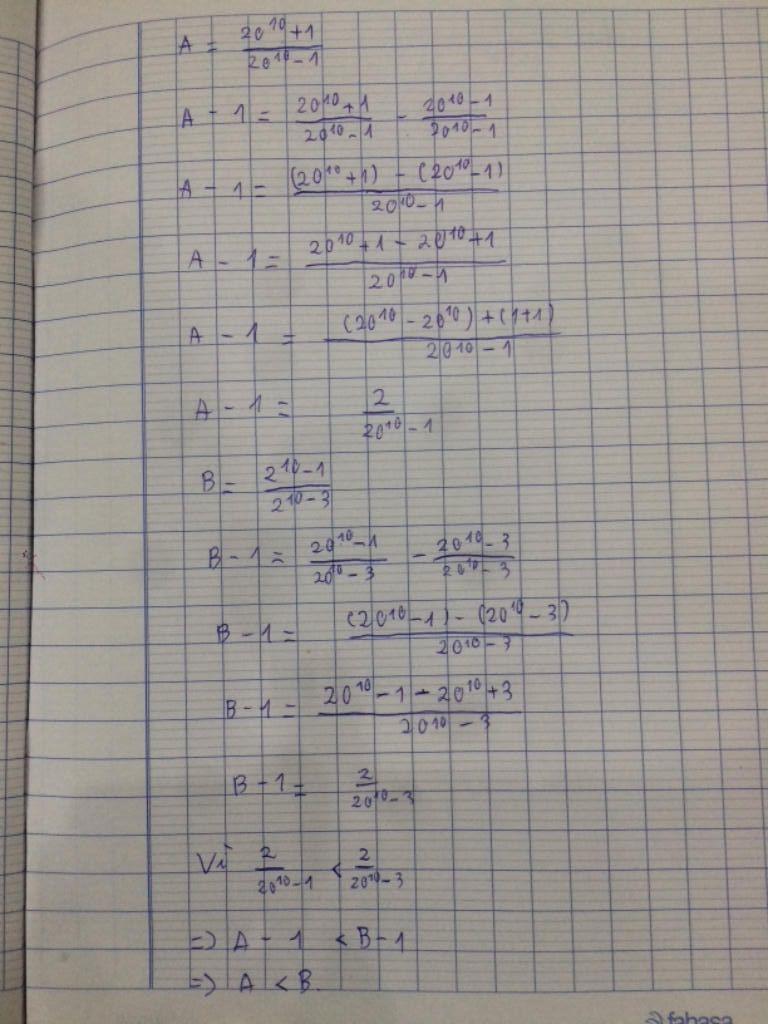 A = \frac{20^{10}+1}{20^{10}-1}
A - 1 = \frac{20^{10}+1}{20^{10}-1} - \frac{20^{10}-1}{20^{10}-1}
A - 1 = \frac{(20^{10}+1) - (20^{10}-1)}{20^{10}-1}
A - 1 = \frac{20^{10}+1-20^{10}+1}{20^{10}-1}
A - 1 = \frac{(20^{10}-20^{10})+(1+1)}{20^{10}-1}
A - 1 = \frac{2}{20^{10}-1}
B = \frac{2^{10}-1}{2^{10}-3}
B - 1 = \frac{20^{10}-1}{20^{10}-3} - \frac{20^{10}-3}{20^{10}-3}
B - 1 = \frac{(20^{10}-1)-(20^{10}-3)}{20^{10}-3}
B - 1 = \frac{20^{10}-1-20^{10}+3}{20^{10}-3}
B - 1 = \frac{2}{20^{10}-3}
Vì \frac{2}{20^{10}-1} < \frac{2}{20^{10}-3}
=> A - 1 < B - 1
=> A < B.
fahasa